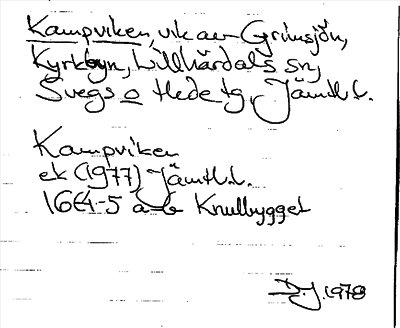 Kampviken, vik av Grimsjön,
Kyrkbyn, Lillhärdals sn,
Svegs o Hede tg, Jämtl.l.
Kampviken
ek (1977) Jämtl.l.
16E4-5 a-b Knulbygget
D.J. 1978